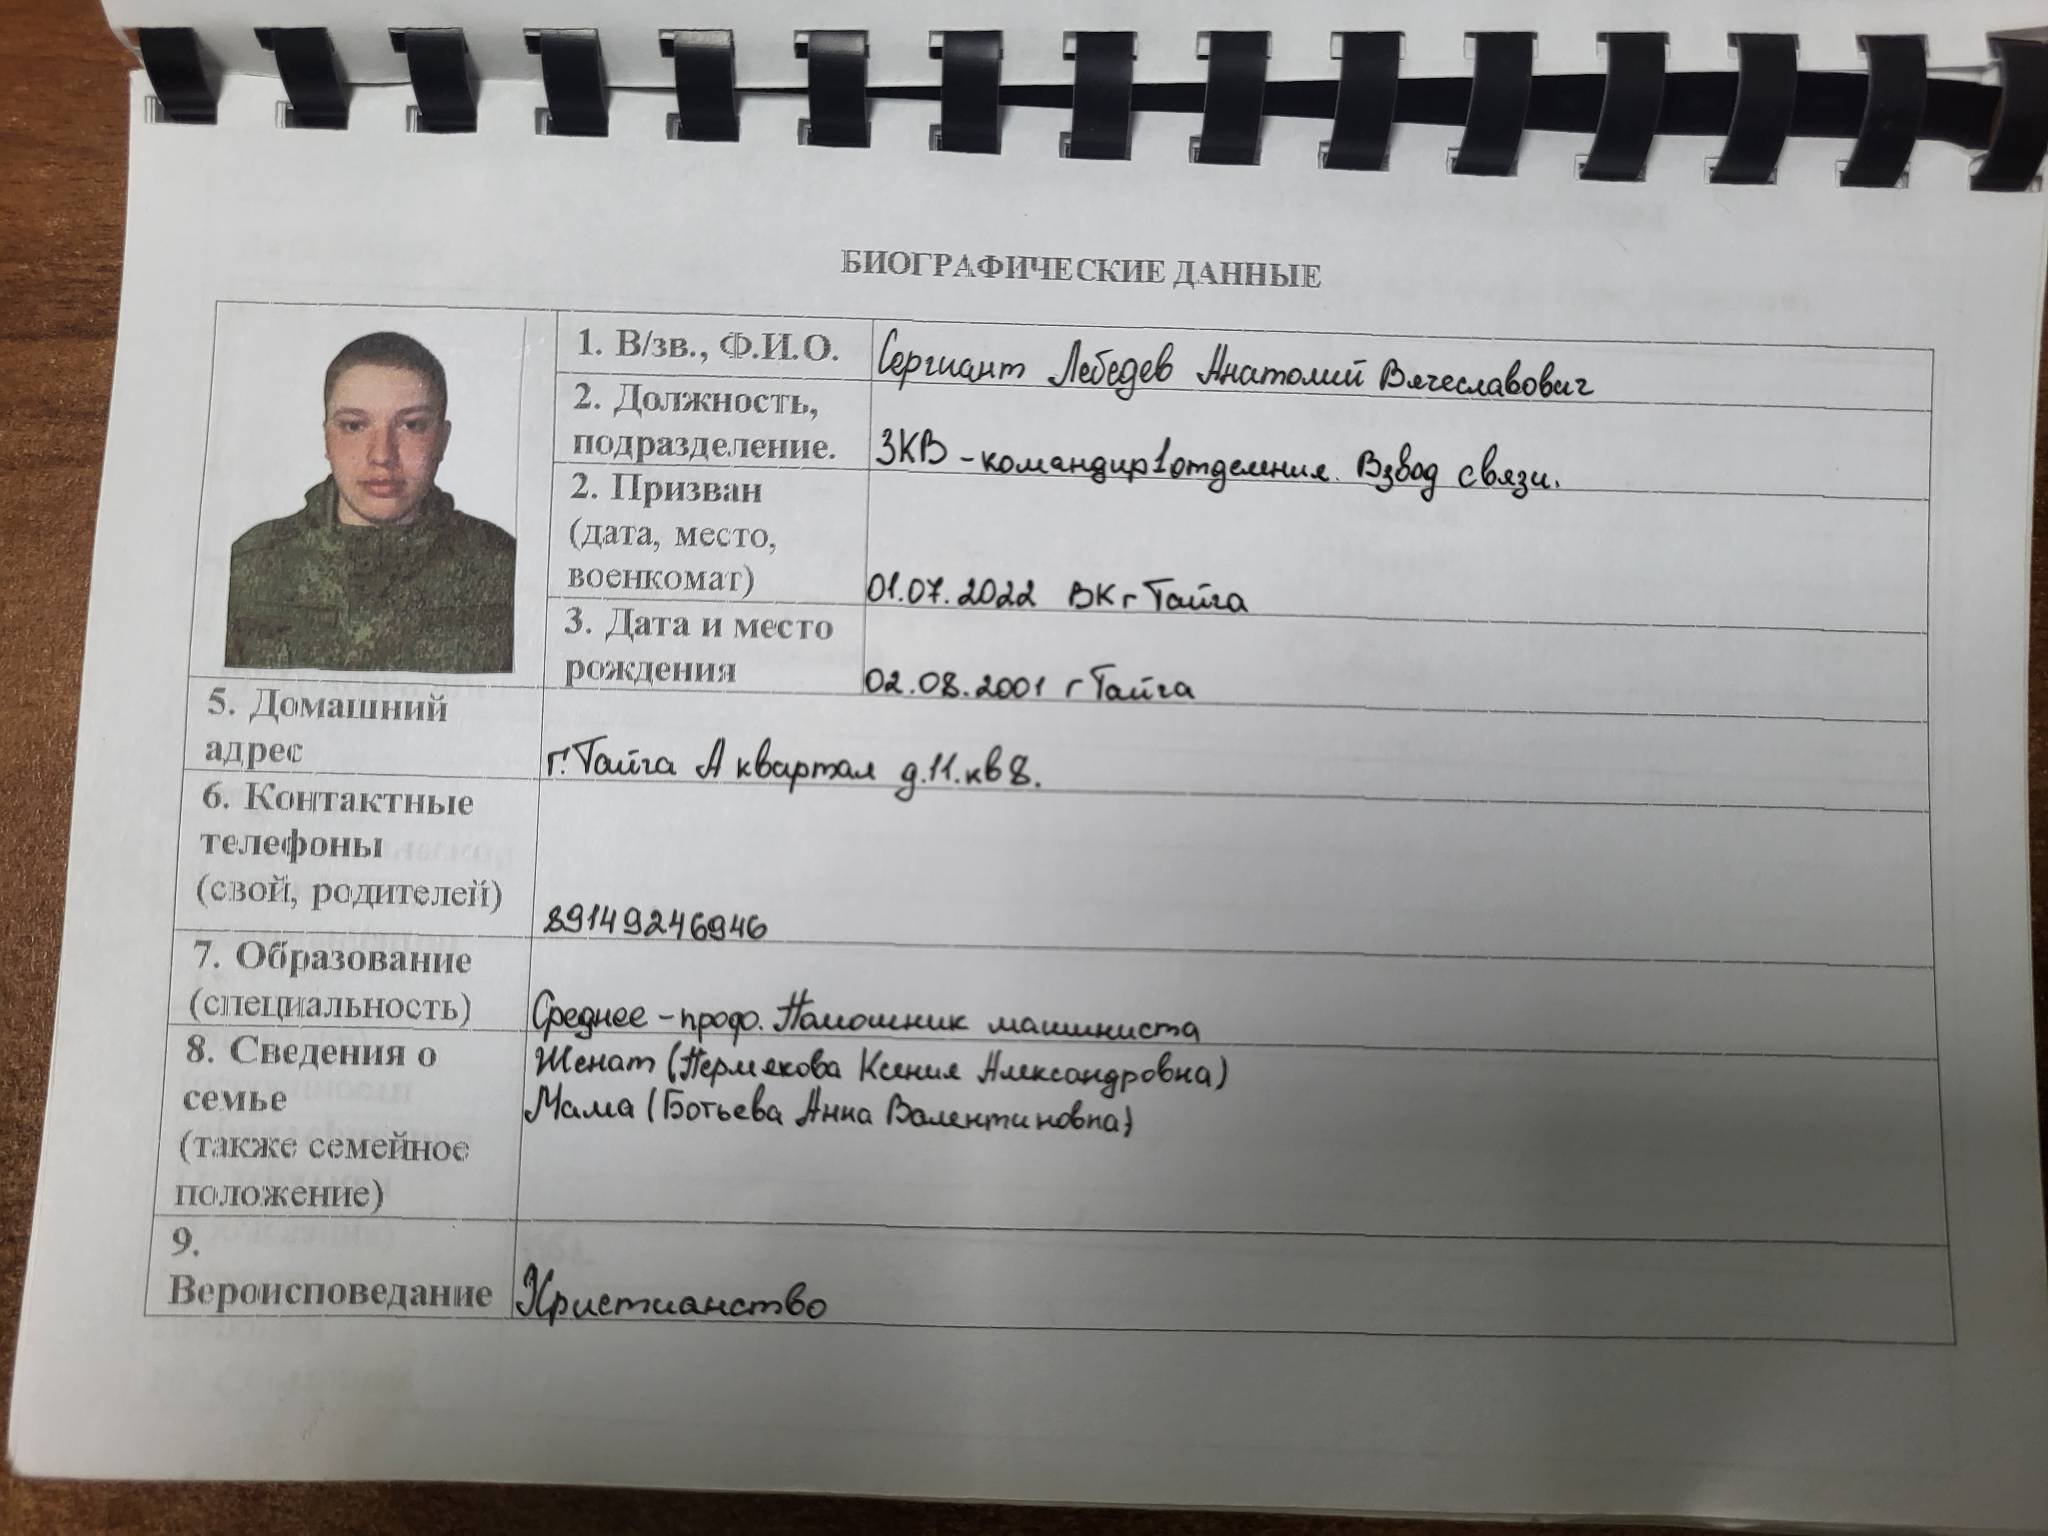 БИОГРАФИЧЕСКИЕ ДАННЫЕ
1. В/зв., Ф.И.О.
Сергиант Лебедев Анатолий Вячеславович
2. Должность,
подразделение.
ЗКВ - командир 1 отделения. Взвод связи.
2. Призван
(дата, место,
военкомат)
01.07.2022 ВК г Тайга
3. Дата и место
рождения
02.08.2001 г Тайга
5. Домашний
адрес
г. Тайга А квартал д.11. кв 8.
6. Контактные
телефоны
(свой, родителей)
89149246946
7. Образование
(специальность)
Среднее - проф. Памошник машиниста
8. Сведения о
семье
(также семейное
положение)
Женат (Пермякова Ксения Александровна)
Мама (Ботьева Анна Валентиновна)
9.
Вероисповедание
Христианство